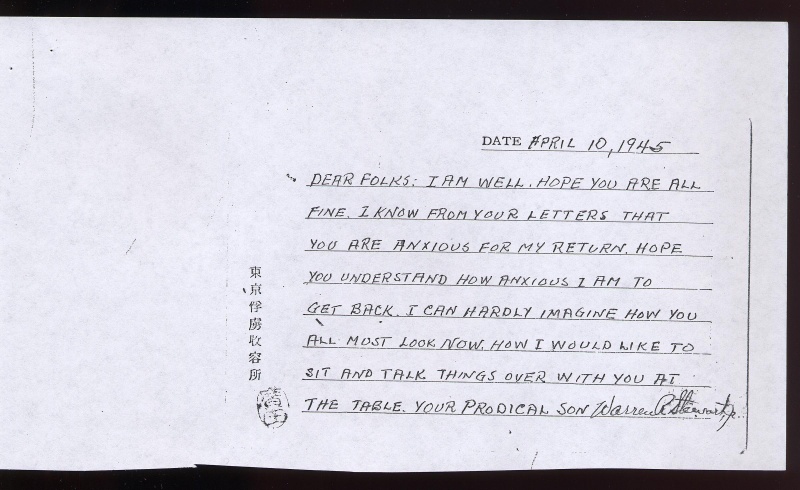 DATE APRIL 10, 1945
DEAR FOLKS: I AM WELL. HOPE YOU ARE ALL
FINE. I KNOW FROM YOUR LETTERS THAT
YOU ARE ANXIOUS FOR MY RETURN. HOPE
YOU UNDERSTAND HOW ANXIOUS I AM TO
GET BACK. I CAN HARDLY IMAGINE HOW YOU
ALL MUST LOOK NOW. HOW I WOULD LIKE TO
SIT AND TALK THINGS OVER WITH YOU AT
THE TABLE. YOUR PRODICAL SON Warren R Stewart, Jr.
東京俘虜收容所